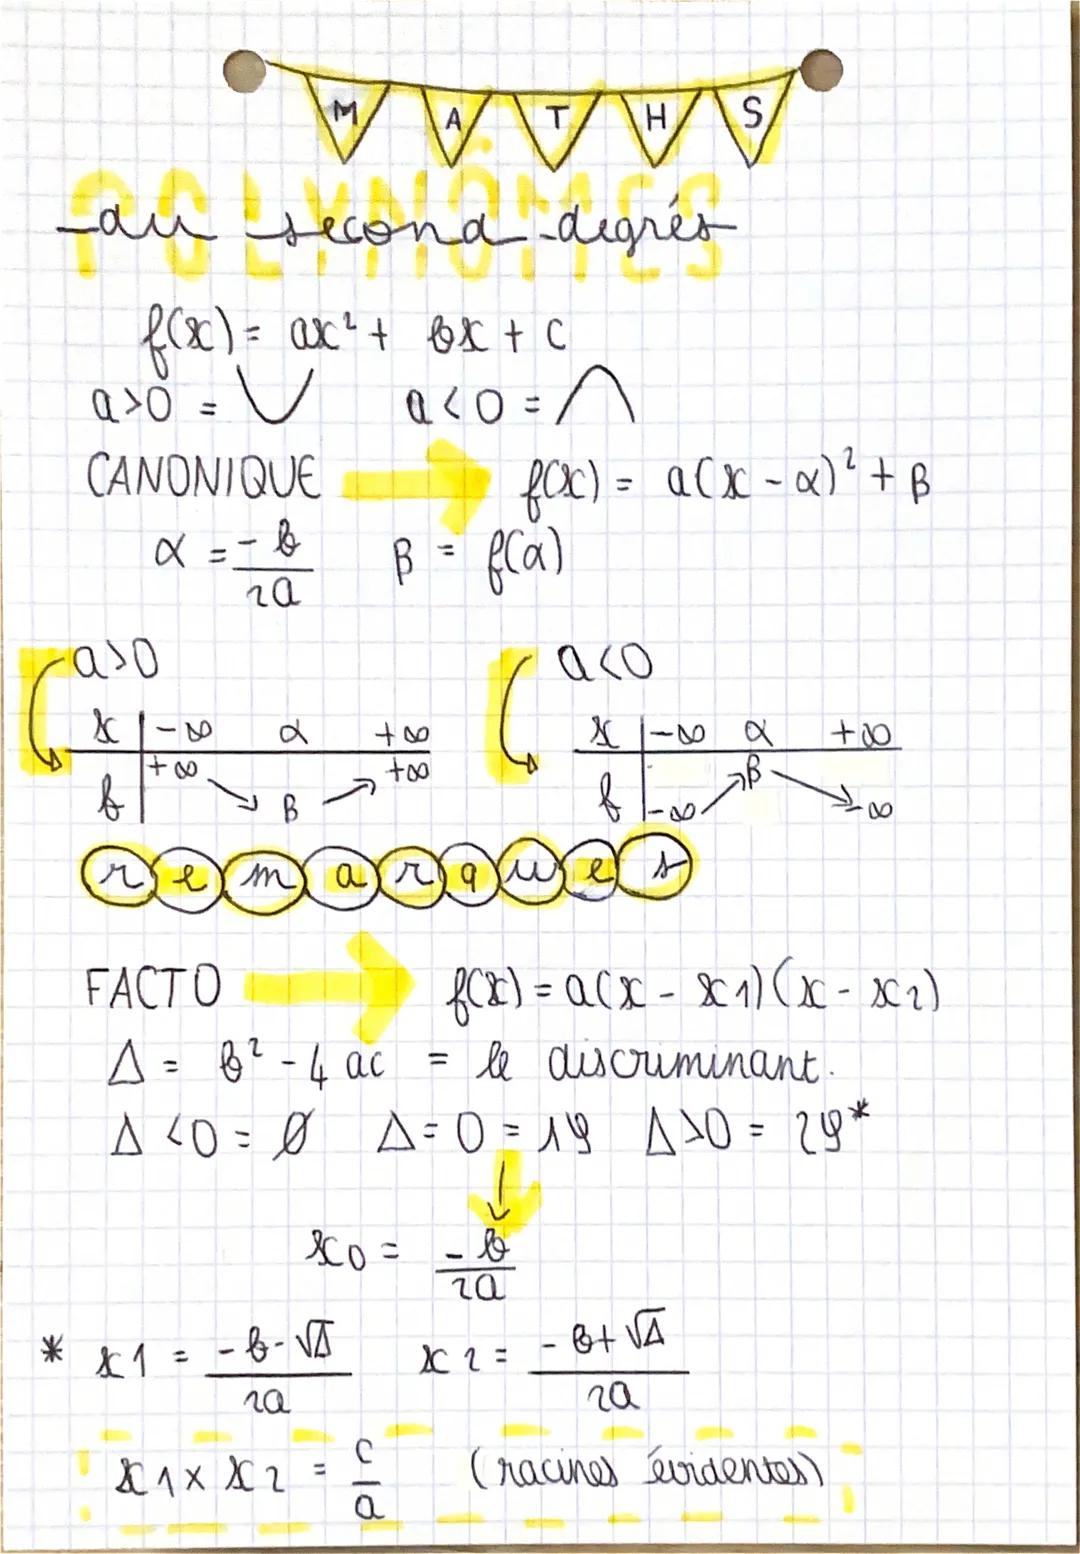 MATHS
POLYNÔMES
du second degrés
f(x) = ax² + bx + c
a>0 = a<0 =
CANONIQUE f(x) = a(x - α)² + β
α = -b/2a β = f(α)
a>0 a<0
x | -∞ α +∞ x | -∞ α +∞
f | +∞ β +∞ f | -∞ β -∞
remarques
FACTO f(x) = a(x - x1)(x - x2)
Δ = b² - 4ac = le discriminant.
Δ<0 = Ø Δ = 0 = 1S Δ>0 = 2S*
x0 = -b/2a
* x1 = -b-√Δ/2a x2 = -b+√Δ/2a
x1 × x2 = c/a (racines évidentes)